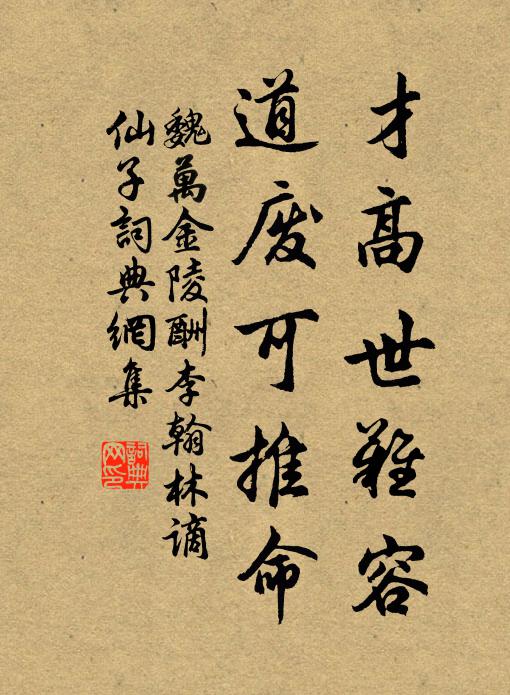 才高世難容
道废可推命
魏萬金陵酬李翰林謫
仙子詞典網集
詞典
网印